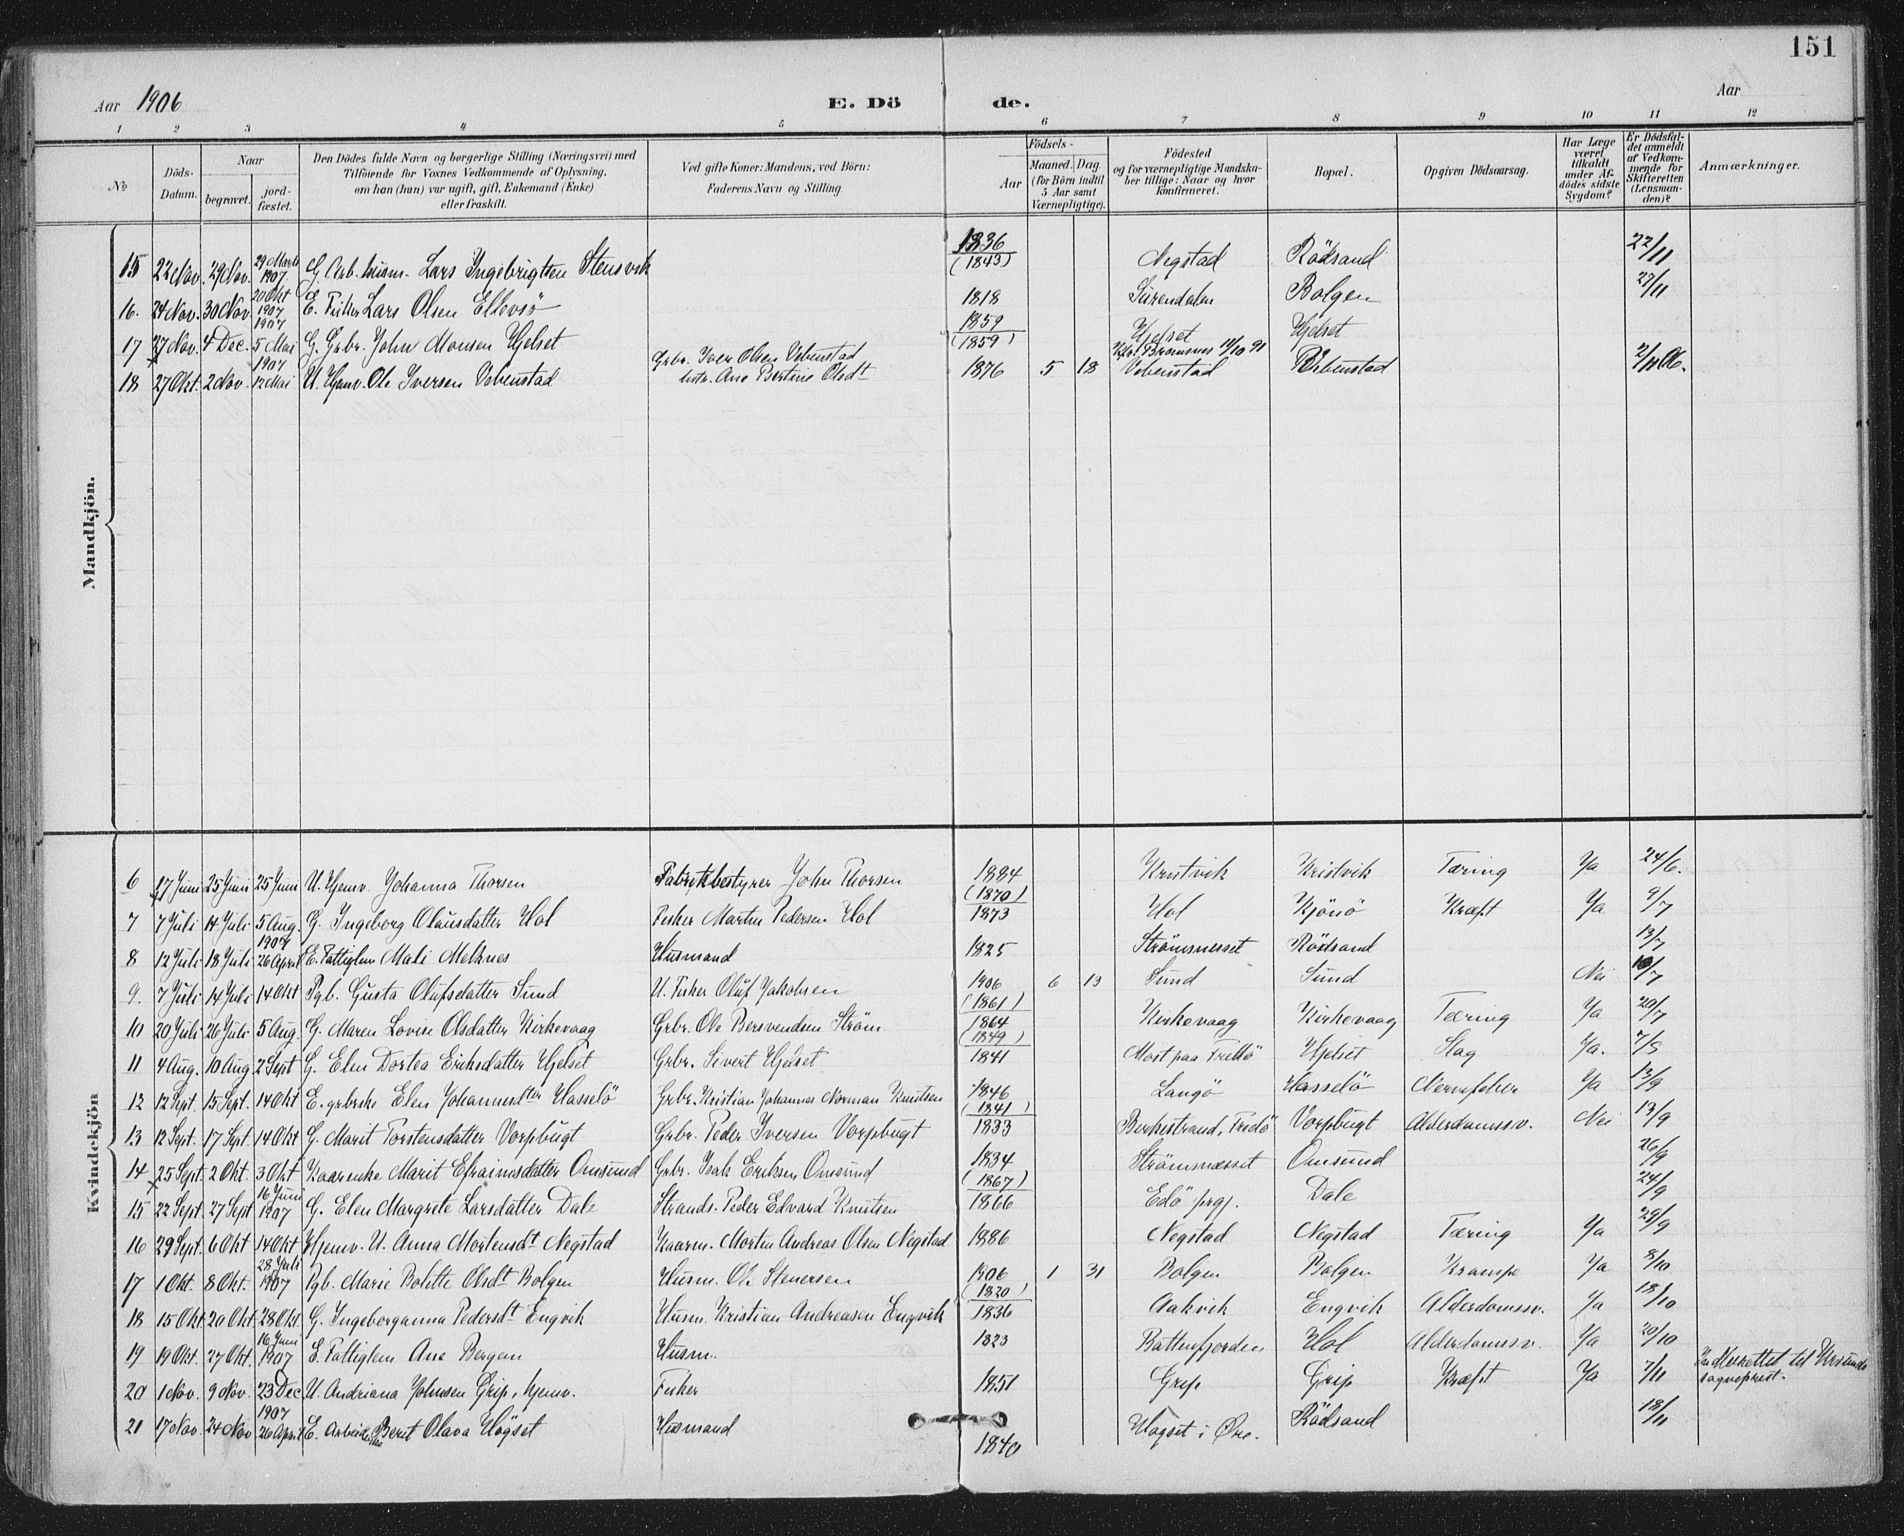 151
Aar 1906 E. Dö de. Aar
1 2 3 4 5 6 7 8 9 10 11 12
No
Döds-Datum.
Naar
begravet.
jord-fæstet.
Den Dödes fulde Navn og borgerlige Stilling (Næringsvei) med
Tilföiende for Voxnes Vedkommende af Oplysning,
om han (hun) var ugift, gift, Enkemand (Enke)
eller fraskilt.
Ved gifte Koner: Mandens, ved Börn:
Faderens Navn og Stilling.
Födsels-
Aar
Maaned. Dag.
(for Börn indtil
5 Aar samt
Værnepligtige).
Födested
og for værnepligtige Mandska-
ber tillige: Naar og hvor
konfirmeret.
Bopæl.
Opgiven Dödsaarsag.
Har Læge
været
tilkaldt
under Af-
dödes sidste
Sygdom?
Er Dödsfal-
det anmeldt
af Vedkom-
mende for
Skifteretten
(Lensman-
den)?
Anmærkninger.
Mandkjön.
15 22 Nov. 29 Nov. 29 Marts 1907 G. Arb. Husm. Lars Ingebrigtsen Stensvik 1836 (1843) Negstad Rödsand 22/11
16. 24 Nov. 30 Nov 20 Okt 1907 E. Fisker Lars Olsen Ellevsö 1818 Surendalen Bolgen 27/11
17 27 Nov. 4 Dec. 1907 5 Mai G. Grbr. John Monsen Hjelset 1859 (1859) Hjelset Hjelset
18 27 Okt. 2 Nov. 1907 12 Mai U. Hjemv. Ole Iversen Vebenstad Grbr. Iver Olsen Vebenstad Hstr. Ane Bertine Olsdt 1876 5 18 Kfr. Bremsnes 11/10 91 Vebenstad Vebenstad 2/11 06.
Kvindekjön
6 17 Juni 25 Juni 25 Juni U. Hjemv. Johanna Thorsen Fabrikbestyrer John Thorsen 1884 Kristvik Kristvik Tæring Ja 24/6.
7 7 Juli 14 Juli 5 Aug. G. Ingeborg Olausdatter Hol Fisker Martin Pedersen Hol (1870) 1873 Hol Kjönö Kræft Ja 9/7
8 12 Juli 18 Juli 1907 26 April E. Fattiglem Mali Melknes Husmand 1825 Strömsnesset Rödsand 13/7
9. 7 Juli 14 Juli 14 Okt Pgb. Gusta Olufsdatter Sund U. Fisker Oluf Jakobsen 1906 6 13 Sund Sund Nei 10/7
10 20 Juli 26 Juli 5 Aug. G. Maren Lovise Olsdatter Kirkevaag Grbr. Ole Bersvendsen Ström (1861) 1864 Kirkevaag Kirkevaag Tæring Ja 20/7
11 4 Aug. 10 Aug 2 Sept G. Elen Dortea Eriksdatter Hjelset Grbr. Sivert Hjelset (1849) 1841 Most paa Fredö Hjelset Slag Ja. 7/8
12 12 Sept. 15 Sept. 14 Okt E. grbrske Elen Johannesdtter Hasselö Grbr. Kristian Johannes Norman Knutsen 1846 Langö Hasselö Nervefeber Ja 13/9
13 12 Sept. 17 Sept. 14 Okt G. Marit Torstensdatter Vorpbugt Grbr. Peder Iversen Vorpbugt (1841) 1833 Birkestrand, Fredö Vorpbugt Alderdomssv. Nei 13/9
14 25 Sept. 2 Okt. 3 Okt Kaarenke Marit Efraimsdatter Omsund Grbr. Isak Eriksen Omsund 1834 Strömsnesset Omsund 26/9
15 22 Sept. 27 Sept 16 Juni 1907 G. Elen Margrete Larsdatter Dale Strands. Peder Edvard Knutsen (1867) 1866 Edö prgj. Dale 24/9
16 29 Sept. 6 Okt 14 Okt Hjemv. U. Anna Mortensdt Negstad Kaarm. Morten Andreas Olsen Negstad 1886 Negstad Negstad Tæring Ja 29/9
17 1 Okt. 8 Okt. 28 Juli 1907 Pgb. Marie Bolette Olsdt Bolgen Husm. Ole Stenersen 1906 1 31 Bolgen Bolgen Krampe Ja 8/10
18 15 Okt 20 Okt. 28 Okt. G. Ingeborganna Pedersdt Engvik Husm. Kristian Andreasen Engvik (1830) 1836 Aakvik Engvik Alderdomssv. Ja 18/10
19 19 Okt. 27 Okt. 16 Juni 1907 E. Fattiglem Ane Bergem Husm. 1823 Battenfjorden Hol Alderdomssv. Ja 20/10
20 1 Nov. 9 Nov. 23 Dec U. Andriana Johnsen Grip, hjemv. Fisker 1851 Grip Grip Kræft Ja 7/11 til Krsunds sogneprest.
21 17 Nov. 24 Nov 1907 26 April E. Berit Olava Högset Husmand 1840 Högset i Öre. Rödsand 18/11